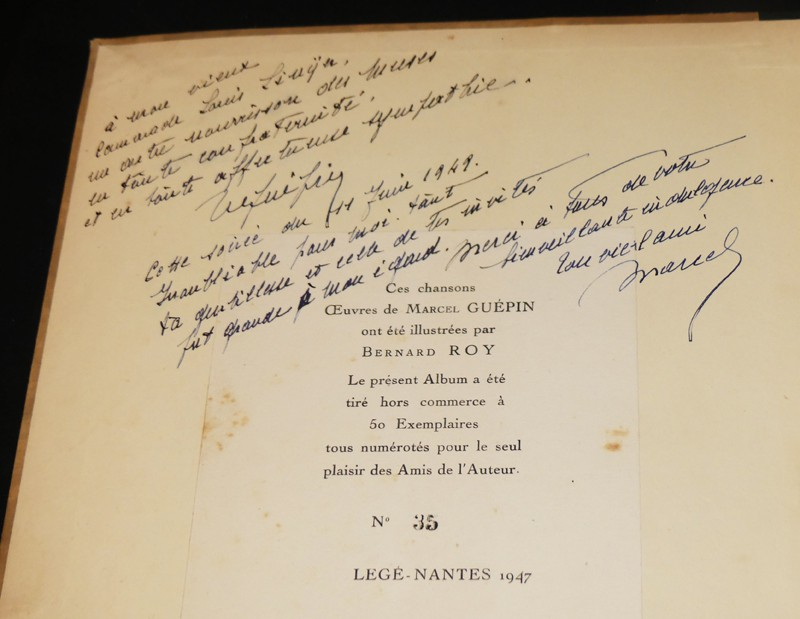 à mon vieux
Camarade Louis
un autre nourrisson des Muses
en toute confraternité,
et en toute affectueuse sympathie.
Cette soirée du 11 Juin 1949.
Inoubliable pour moi. tant
ta gentillesse et celle de tes invités
fut grande à mon égard. Merci à tous de votre
bienveillante indulgence.
Ton vieil ami
Marcel
Ces chansons
Œuvres de MARCEL GUÉPIN
ont été illustrées par
BERNARD ROY
Le présent Album a été
tiré hors commerce à
50 Exemplaires
tous numérotés pour le seul
plaisir des Amis de l'Auteur.
N° 35
LEGÉ-NANTES 1947